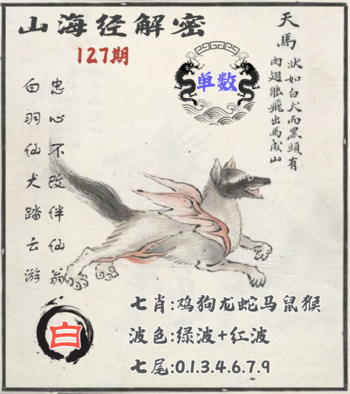 山海经解密
127期
天馬
狀如白犬而黑頭有
肉翅能飛出馬成山
单数
忠心不改伴仙翁
白羽仙犬踏云游
白
七肖:鸡狗龙蛇马鼠猴
波色:绿波+红波
七尾:0.1.3.4.6.7.9